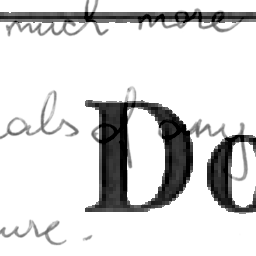 much more
als of any
Do
ure.